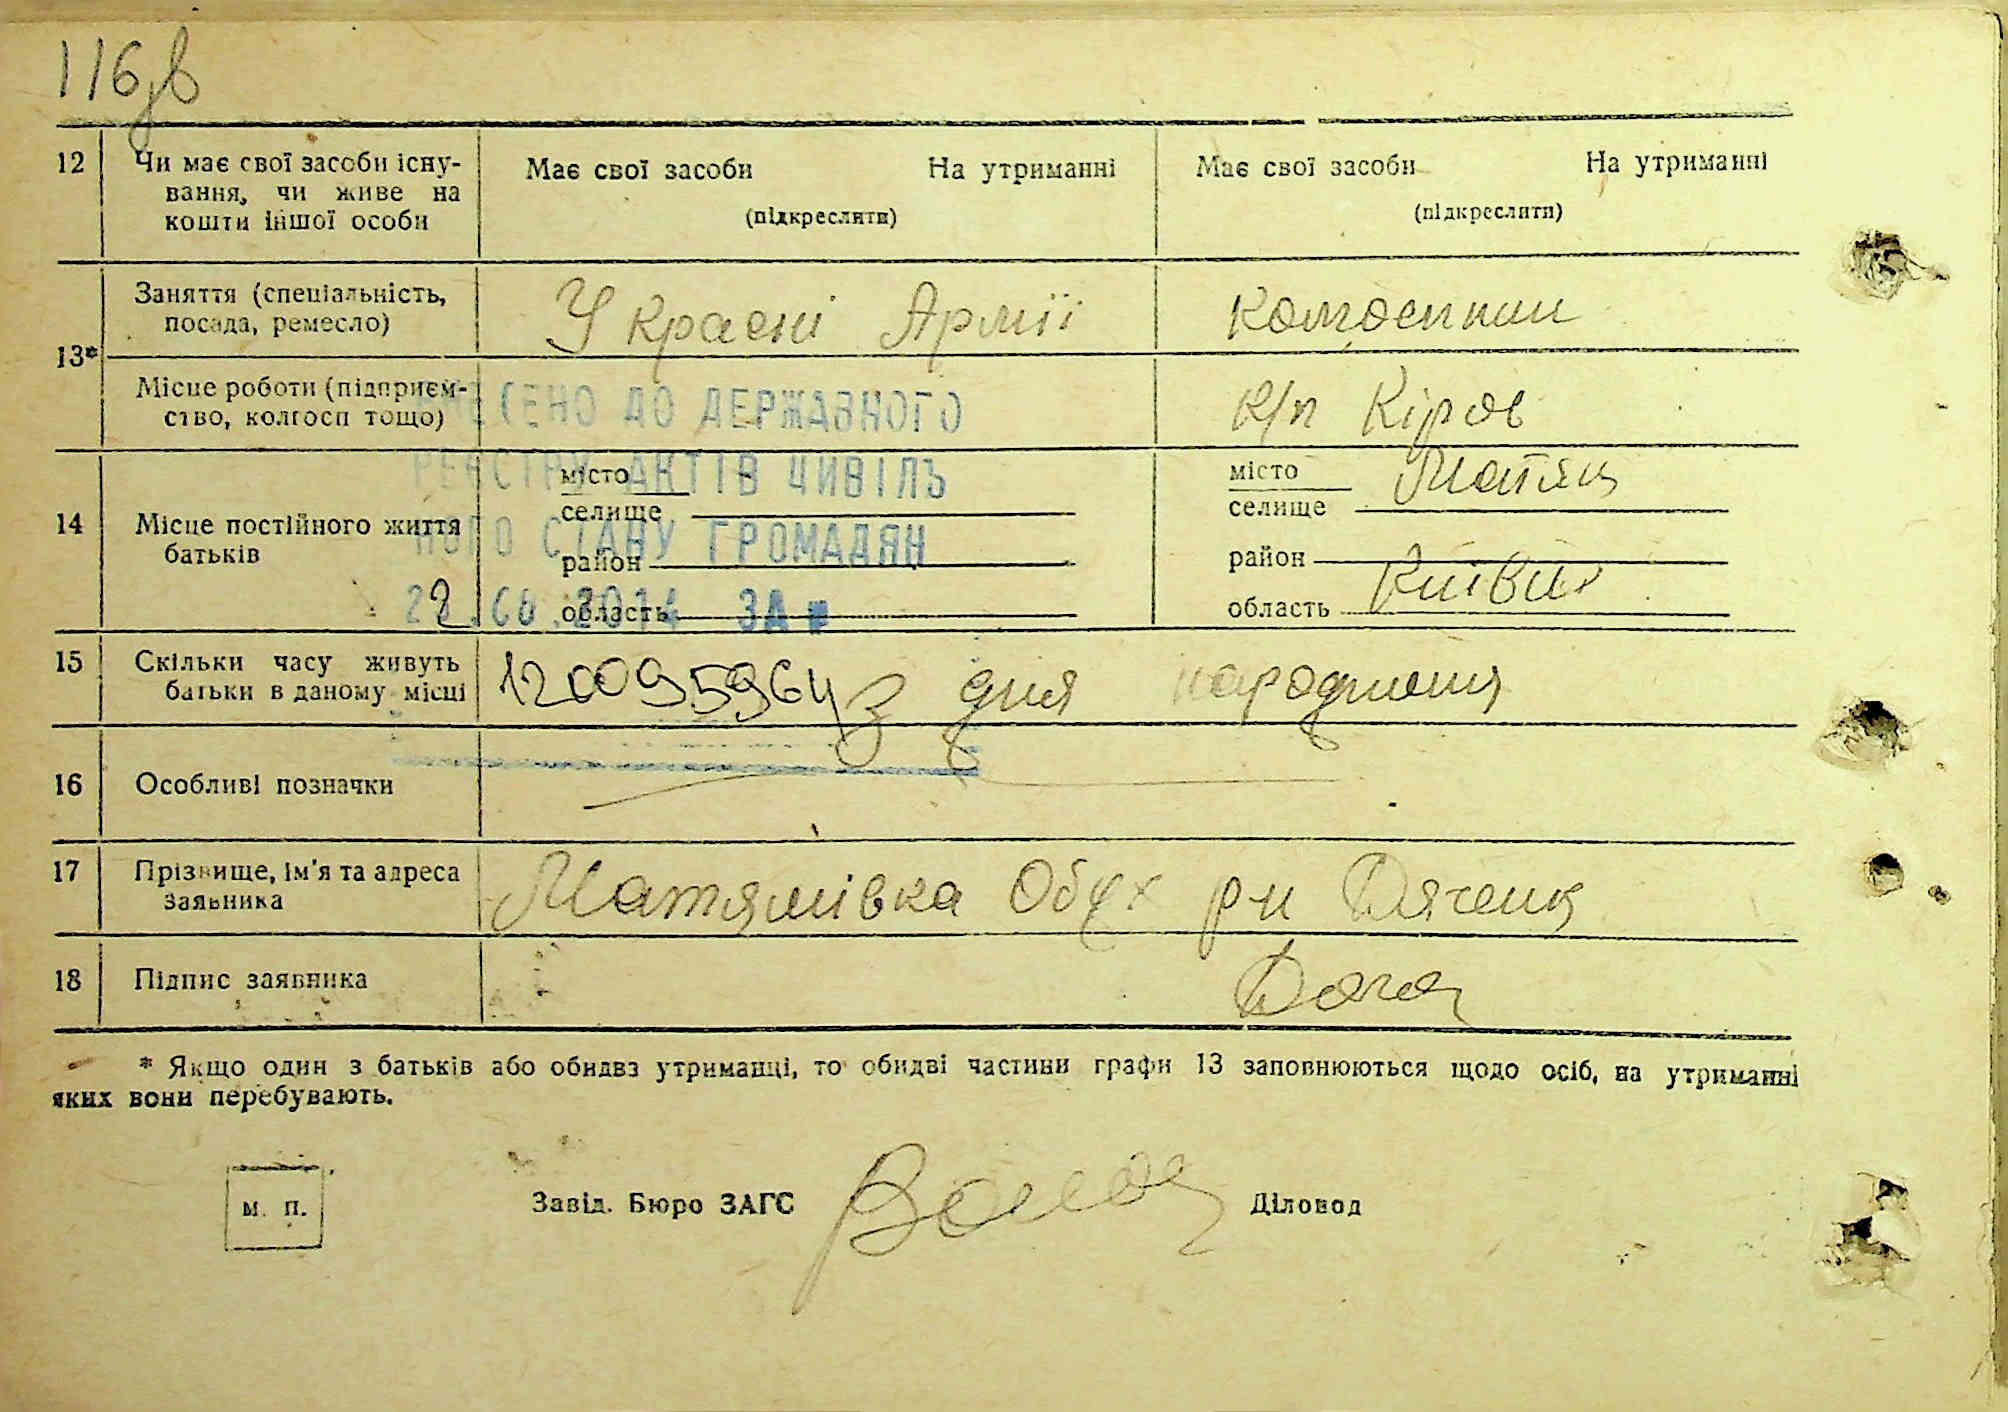 116зв
12 Чи має свої засоби існу- Має свої засоби На утриманні Має свої засоби На утриманні
вання, чи живе на
кошти іншої особи (підкреслити) (підкреслити)
Заняття (спеціальність, У Красні Армії
посада, ремесло)
13*
Місце роботи (підприєм- СЕНО ДО ДЕРЖАВНОГО к/п Кіров
ство, колгосп тощо)
РЕЄСТРУ АКТІВ ЦИВІЛЬ
місто місто
14 Місце постійного життя селище селище
батьків НОГО СТАНУ ГРОМАДЯН
район район
область ЗА № область Київськ
15 Скільки часу живуть 120095964 з дня народження
батьки в даному місці
16 Особливі позначки
17 Прізвище, ім'я та адреса Матяшівка Обух р-н Дяченк
заявника
18 Підпис заявника
* Якщо один з батьків або обидва утриманці, то обидві частини графи 13 заповнюються щодо осіб, на утриманні
яких вони перебувають.
м. п. Завід. Бюро ЗАГС Діловод